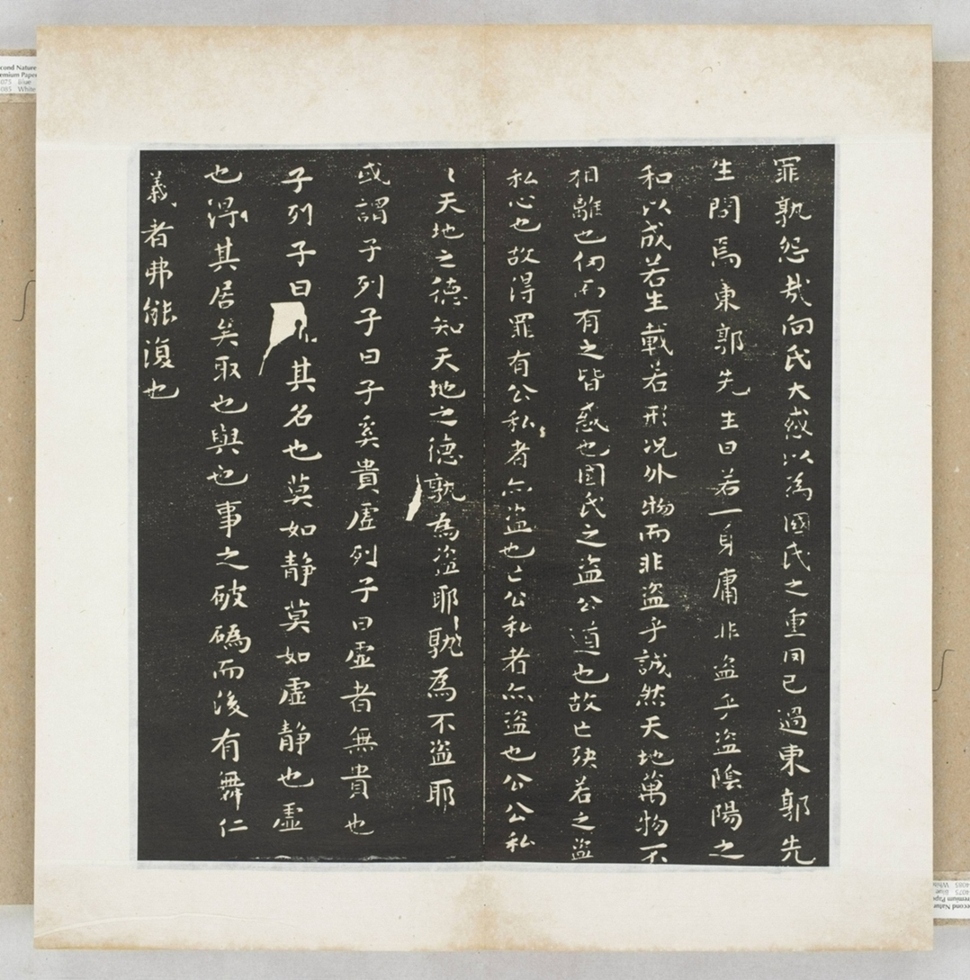 罪孰怨哉向氏大惑以為國氏之重罔已過東郭先
生問焉東郭先生曰若一身庸非盜乎盜陰陽之
和以成若生載若形況外物而非盜乎誠然天地萬物不
相離也仞而有之皆惑也國氏之盜公道也故亡殃若之盜
私心也故得罪有公私者亦盜也亡公私者亦盜也公公私
私天地之德知天地之德孰為盜耶孰為不盜耶
或謂子列子曰子奚貴虛列子曰虛者無貴也
子列子曰非其名也莫如静莫如虛静也虛
也得其居矣取也與也事之破䃣而後有舞仁
義者弗能復也
Second Nature
Premium Paper
4075 Blue
4085 White